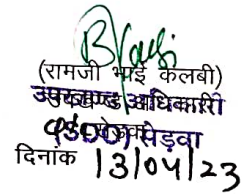 (रामजी भाई कलबी)
उपखण्ड अधिकारी
(SDO) सेड़वा
दिनांक 13/04/23